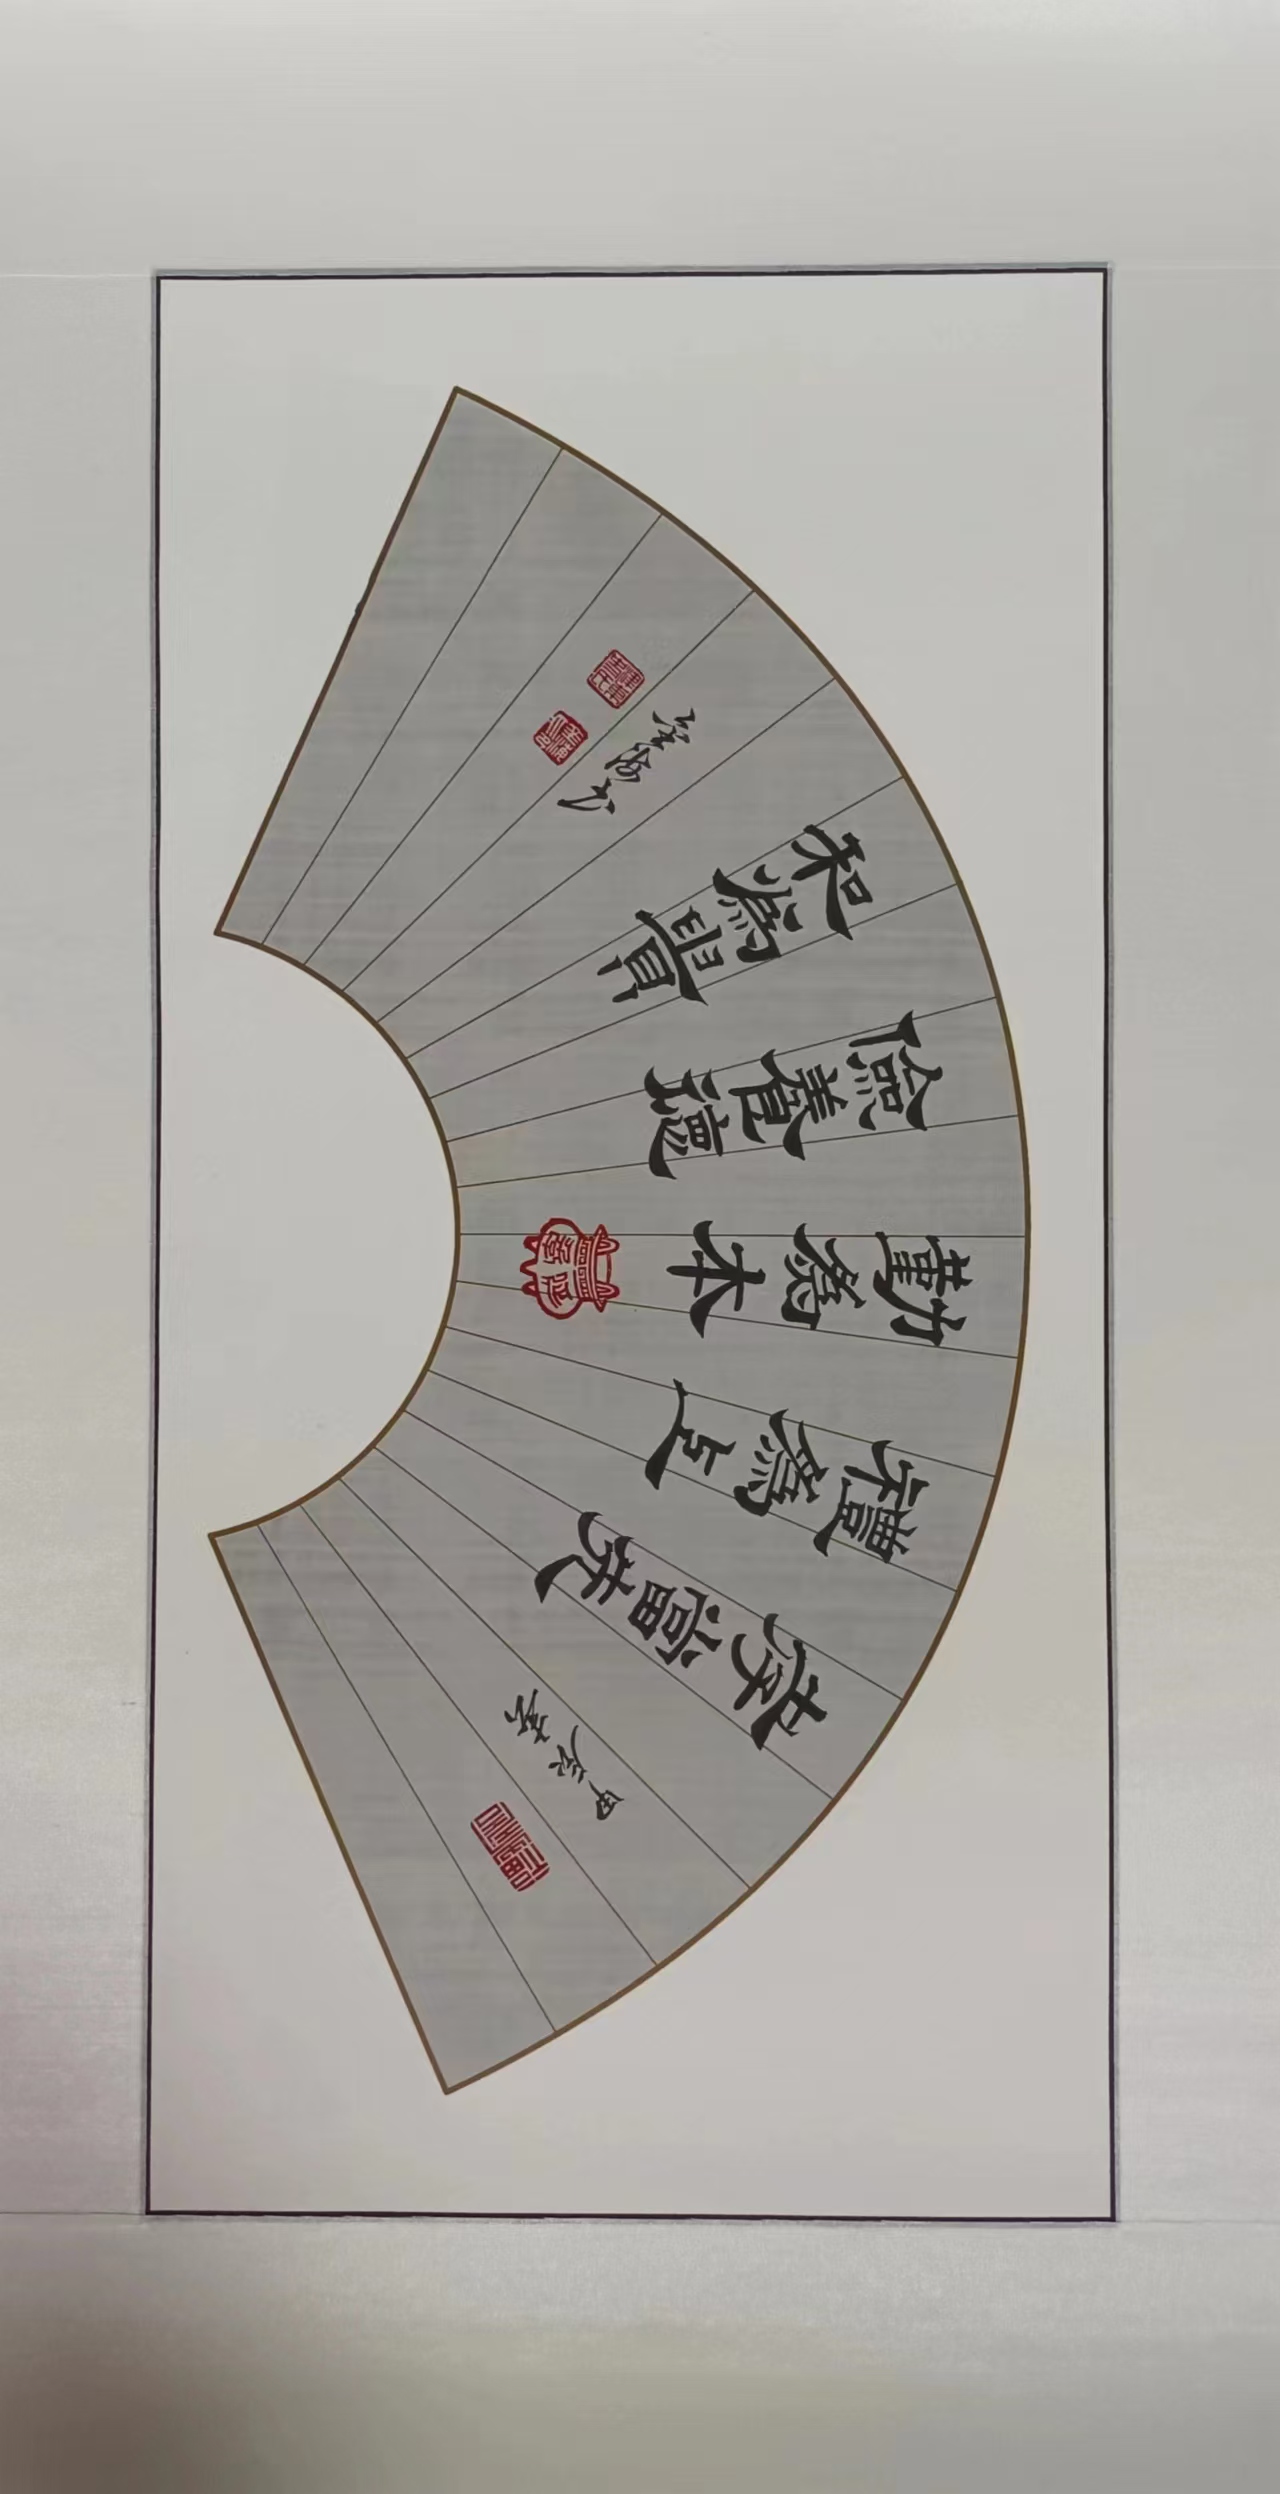 甲辰
孝當先
禮爲上
勤爲本
儉養德
和爲貴